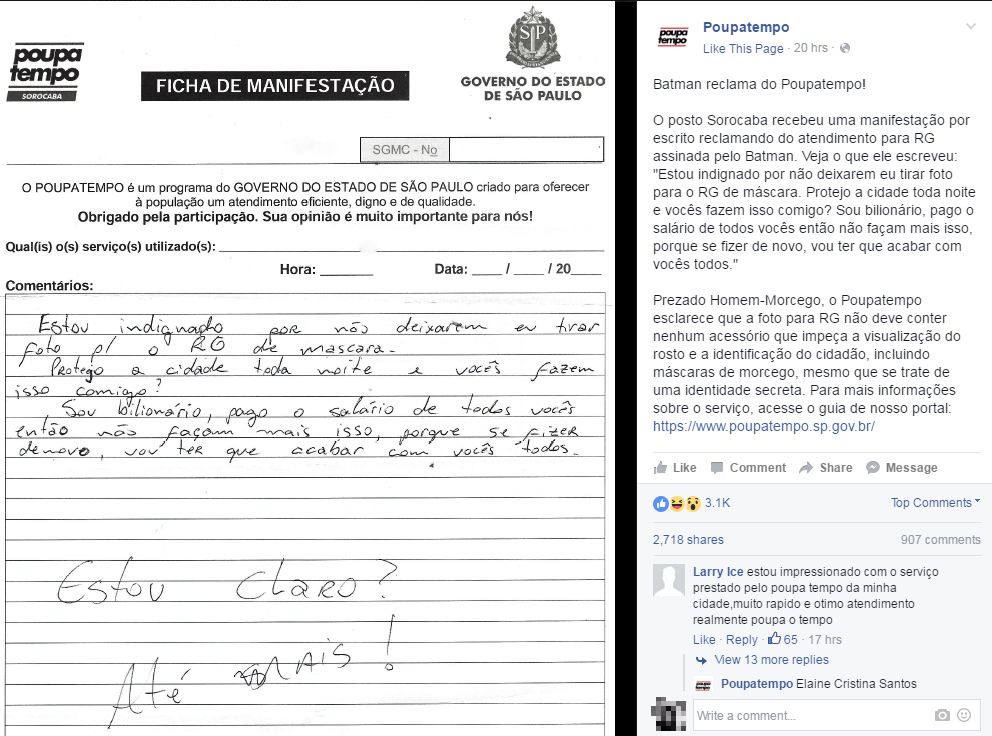 poupa
tempo
SOROCABA
FICHA DE MANIFESTAÇÃO
SP
GOVERNO DO ESTADO
DE SÃO PAULO
SGMC - No
O POUPATEMPO é um programa do GOVERNO DO ESTADO DE SÃO PAULO criado para oferecer
à população um atendimento eficiente, digno e de qualidade.
Obrigado pela participação. Sua opinião é muito importante para nós!
Qual(is) o(s) serviço(s) utilizado(s):
Hora: Data: / / 20
Comentários:
Estou indignado por não deixarem eu tirar
foto p/ o RG de mascara.
Protejo a cidade toda noite e vocês fazem
isso comigo?
Sou bilionário, pago o salário de todos vocês
então não façam mais isso, porque se fizer
denovo, vou ter que acabar com vocês todos.
Estou Claro?
Até mais!
poupa
tempo
Poupatempo
Like This Page · 20 hrs ·
Batman reclama do Poupatempo!
O posto Sorocaba recebeu uma manifestação por
escrito reclamando do atendimento para RG
assinada pelo Batman. Veja o que ele escreveu:
"Estou indignado por não deixarem eu tirar foto
para o RG de máscara. Protejo a cidade toda noite
e vocês fazem isso comigo? Sou bilionário, pago o
salário de todos vocês então não façam mais isso,
porque se fizer de novo, vou ter que acabar com
vocês todos."
Prezado Homem-Morcego, o Poupatempo
esclarece que a foto para RG não deve conter
nenhum acessório que impeça a visualização do
rosto e a identificação do cidadão, incluindo
máscaras de morcego, mesmo que se trate de
uma identidade secreta. Para mais informações
sobre o serviço, acesse o guia de nosso portal:
https://www.poupatempo.sp.gov.br/
Like Comment Share Message
3.1K Top Comments
2,718 shares 907 comments
Larry Ice estou impressionado com o serviço
prestado pelo poupa tempo da minha
cidade,muito rapido e otimo atendimento
realmente poupa o tempo
Like · Reply · 65 · 17 hrs
View 13 more replies
Poupatempo Elaine Cristina Santos
Write a comment...